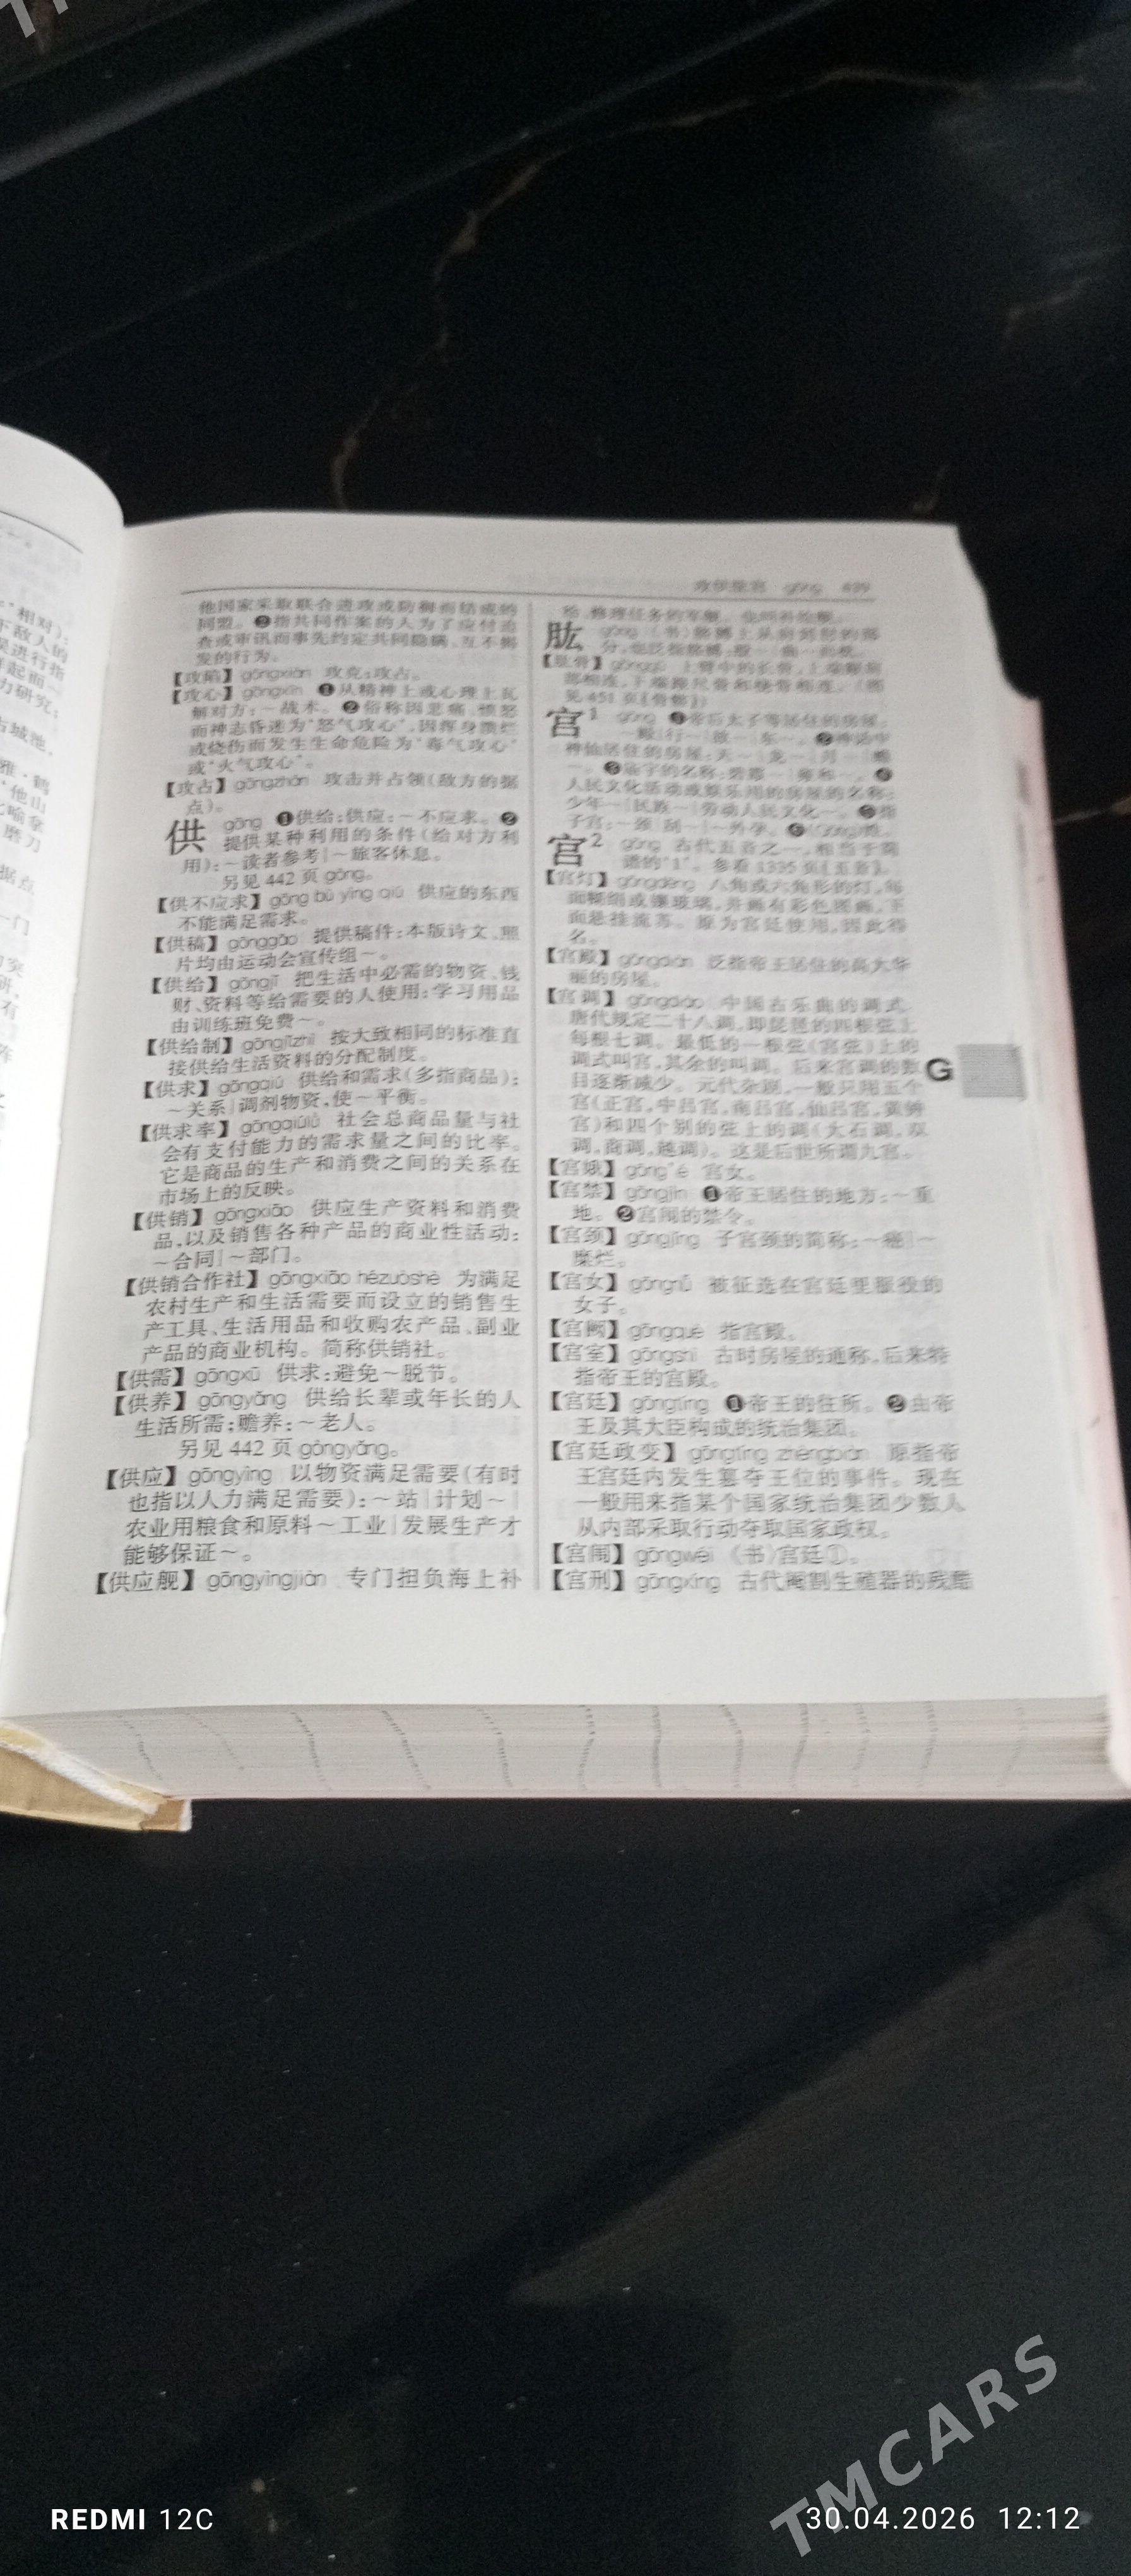 他国家采取联合进攻或防御而结成的
同盟。❷指共同作案的人为了应付追
查或审讯而事先约定共同隐瞒、互不揭
发的行为。
【攻陷】gōngxiàn 攻克;攻占。
【攻心】gōngxīn ❶从精神上或心理上瓦
解对方:～战术。❷俗称因悲痛、愤怒
而神志昏迷为“怒气攻心”,因浑身溃烂
或烧伤而发生生命危险为“毒气攻心”
或“火气攻心”。
【攻占】gōngzhàn 攻击并占领(敌方的据
点)。
供 gōng ❶供给;供应:～不应求。❷
提供某种利用的条件(给对方利
用):～读者参考|～旅客休息。
另见 442 页 gòng。
【供不应求】gōng bù yìng qiú 供应的东西
不能满足需求。
【供稿】gōnggǎo 提供稿件:本版诗文、照
片均由运动会宣传组～。
【供给】gōngjǐ 把生活中必需的物资、钱
财、资料等给需要的人使用:学习用品
由训练班免费～。
【供给制】gōngjǐzhì 按大致相同的标准直
接供给生活资料的分配制度。
【供求】gōngqiú 供给和需求(多指商品):
～关系|调剂物资,使～平衡。
【供求率】gōngqiúlǜ 社会总商品量与社
会有支付能力的需求量之间的比率。
它是商品的生产和消费之间的关系在
市场上的反映。
【供销】gōngxiāo 供应生产资料和消费
品,以及销售各种产品的商业性活动:
～合同|～部门。
【供销合作社】gōngxiāo hézuòshè 为满足
农村生产和生活需要而设立的销售生
产工具、生活用品和收购农产品、副业
产品的商业机构。简称供销社。
【供需】gōngxū 供求:避免～脱节。
【供养】gōngyǎng 供给长辈或年长的人
生活所需;赡养:～老人。
另见 442 页 gòngyǎng。
【供应】gōngyìng 以物资满足需要(有时
也指以人力满足需要):～站|计划～|
农业用粮食和原料～工业|发展生产才
能够保证～。
【供应舰】gōngyìngjiàn 专门担负海上补
肱 gōng
宫1 gōng ❶帝后太子等居住的房屋:
神仙居住的房屋:
人民文化活动或娱乐用的房屋的名称:
少年～|民族～|劳动人民文化～。
宫2 gōng 古代五音之一,相当于简
谱的“1”。参看 1335 页〖五音〗。
【宫灯】gōngdēng 八角或六角形的灯,每
面糊绢或镶玻璃,并画有彩色图画,下
面悬挂流苏。原为宫廷使用,因此得
名。
【宫殿】gōngdiàn 泛指帝王居住的高大华
丽的房屋。
【宫调】gōngdiào 中国古乐曲的调式。
唐代规定二十八调,即琵琶的四根弦上
每根七调。最低的一根弦(宫弦)上的
调式叫宫,其余的叫调。后来宫调的数
目逐渐减少。元代杂剧,一般只用五个
宫(正宫,中吕宫,南吕宫,仙吕宫,黄钟
宫)和四个别的弦上的调(大石调,双
调,商调,越调)。这是后世所谓九宫。
G
【宫娥】gōng'é 宫女。
【宫禁】gōngjìn ❶帝王居住的地方:～重
地。❷宫闱的禁令。
【宫颈】gōngjǐng 子宫颈的简称:～癌|～
糜烂。
【宫女】gōngnǚ 被征选在宫廷里服役的
女子。
【宫阙】gōngquè 指宫殿。
【宫室】gōngshì 古时房屋的通称,后来特
指帝王的宫殿。
【宫廷】gōngtíng ❶帝王的住所。❷由帝
王及其大臣构成的统治集团。
【宫廷政变】gōngtíng zhèngbiàn 原指帝
王宫廷内发生篡夺王位的事件。现在
一般用来指某个国家统治集团少数人
从内部采取行动夺取国家政权。
【宫闱】gōngwéi 〈书〉宫廷①。
【宫刑】gōngxíng 古代阉割生殖器的残酷
TMCARS
REDMI 12C
30.04.2026 12:12